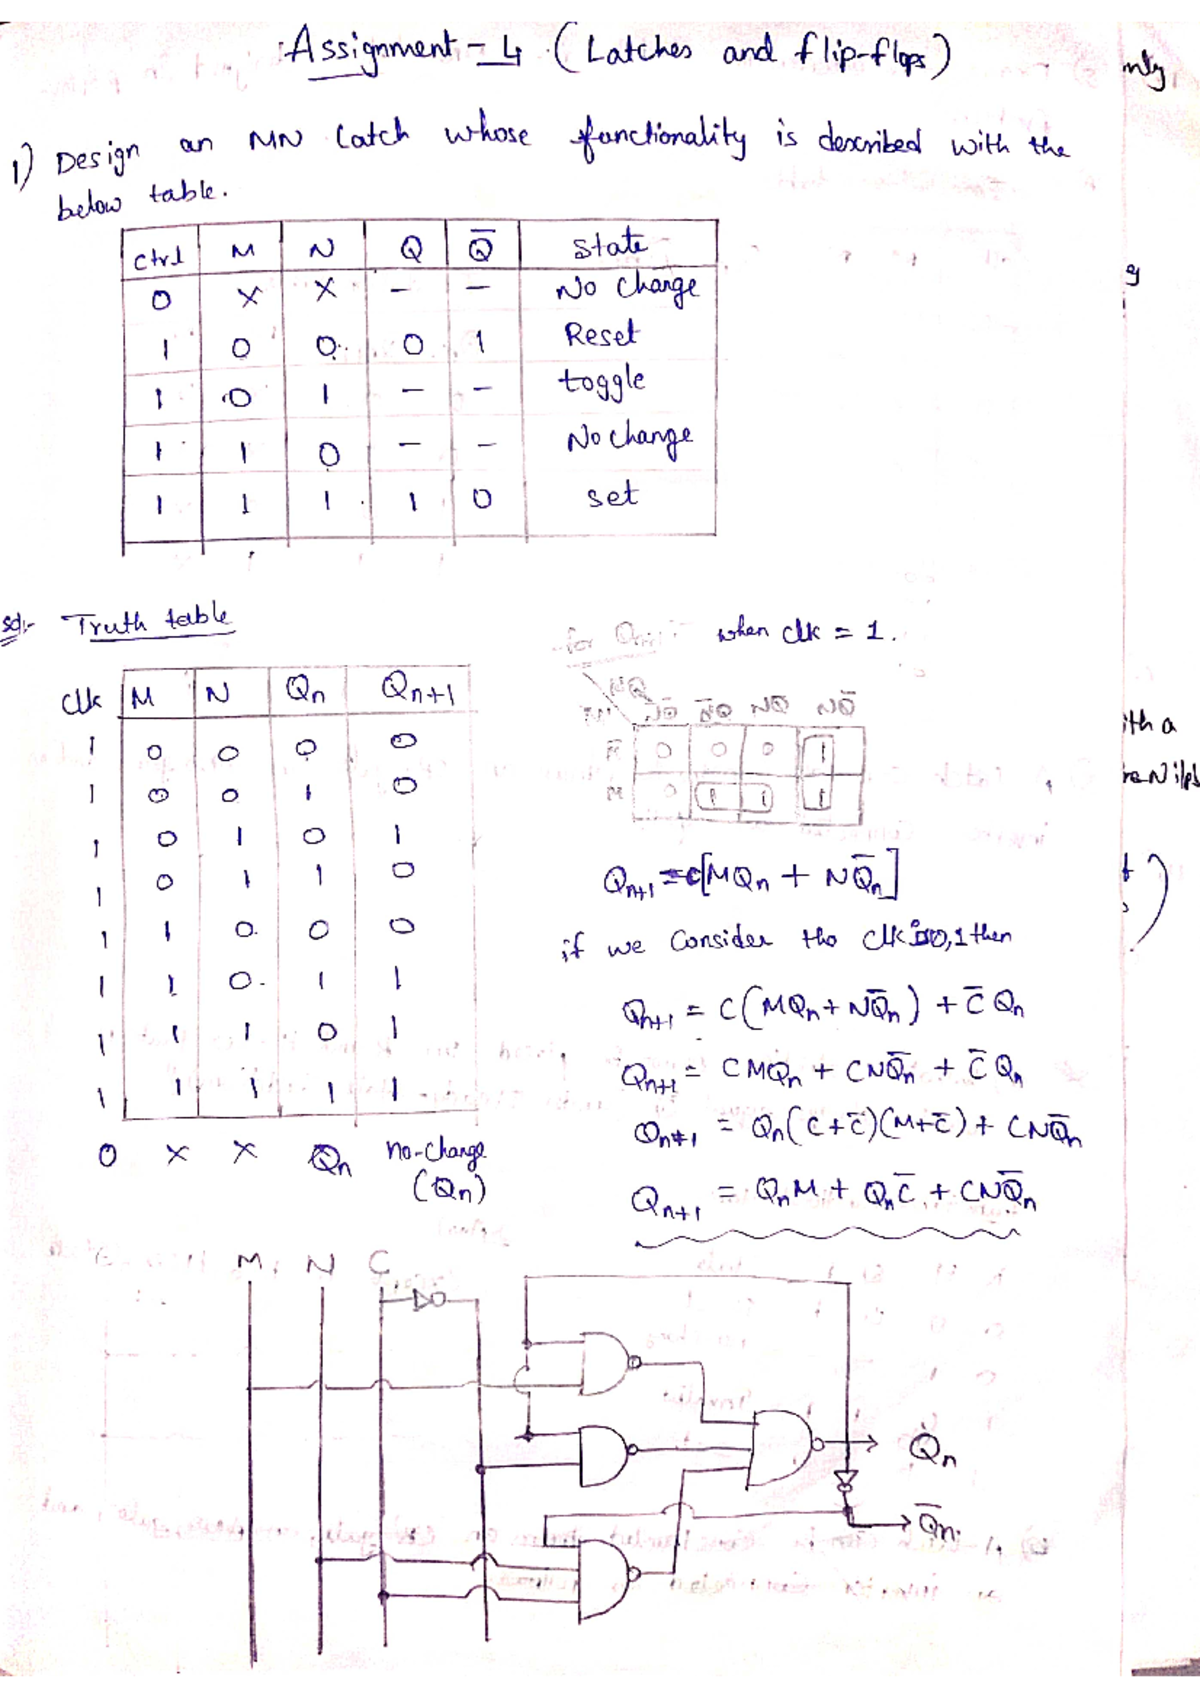 Assignment - 4 (Latches and flip-flops)
1) Design an MN Latch whose functionality is described with the
below table.
ctrl M N Q Q̅ State
0 X X - - No change
1 0 0 0 1 Reset
1 0 1 - - toggle
1 1 0 - - No change
1 1 1 1 0 set
Sol:- Truth table
Clk M N Qn Qn+1
1 0 0 0 0
1 0 0 1 0
1 0 1 0 1
1 0 1 1 0
1 1 0 0 0
1 1 0 1 1
1 1 1 0 1
1 1 1 1 1
0 X X Qn no-change
(Qn)
for Qn+1 :- when clk = 1.
M̅ 0 0 0 1
M 0 1 1 1
Qn+1 = C[MQn + NQ̅n]
if we Consider the clk is 0,1 then
Qn+1 = C(MQn + NQ̅n) + C̅Qn
Qn+1 = CMQn + CNQ̅n + C̅Qn
Qn+1 = Qn(C+C̅)(M+C̅) + CNQ̅n
Qn+1 = QnM + QnC̅ + CNQ̅n
M N C
Qn
Q̅n
nly
y
ith a